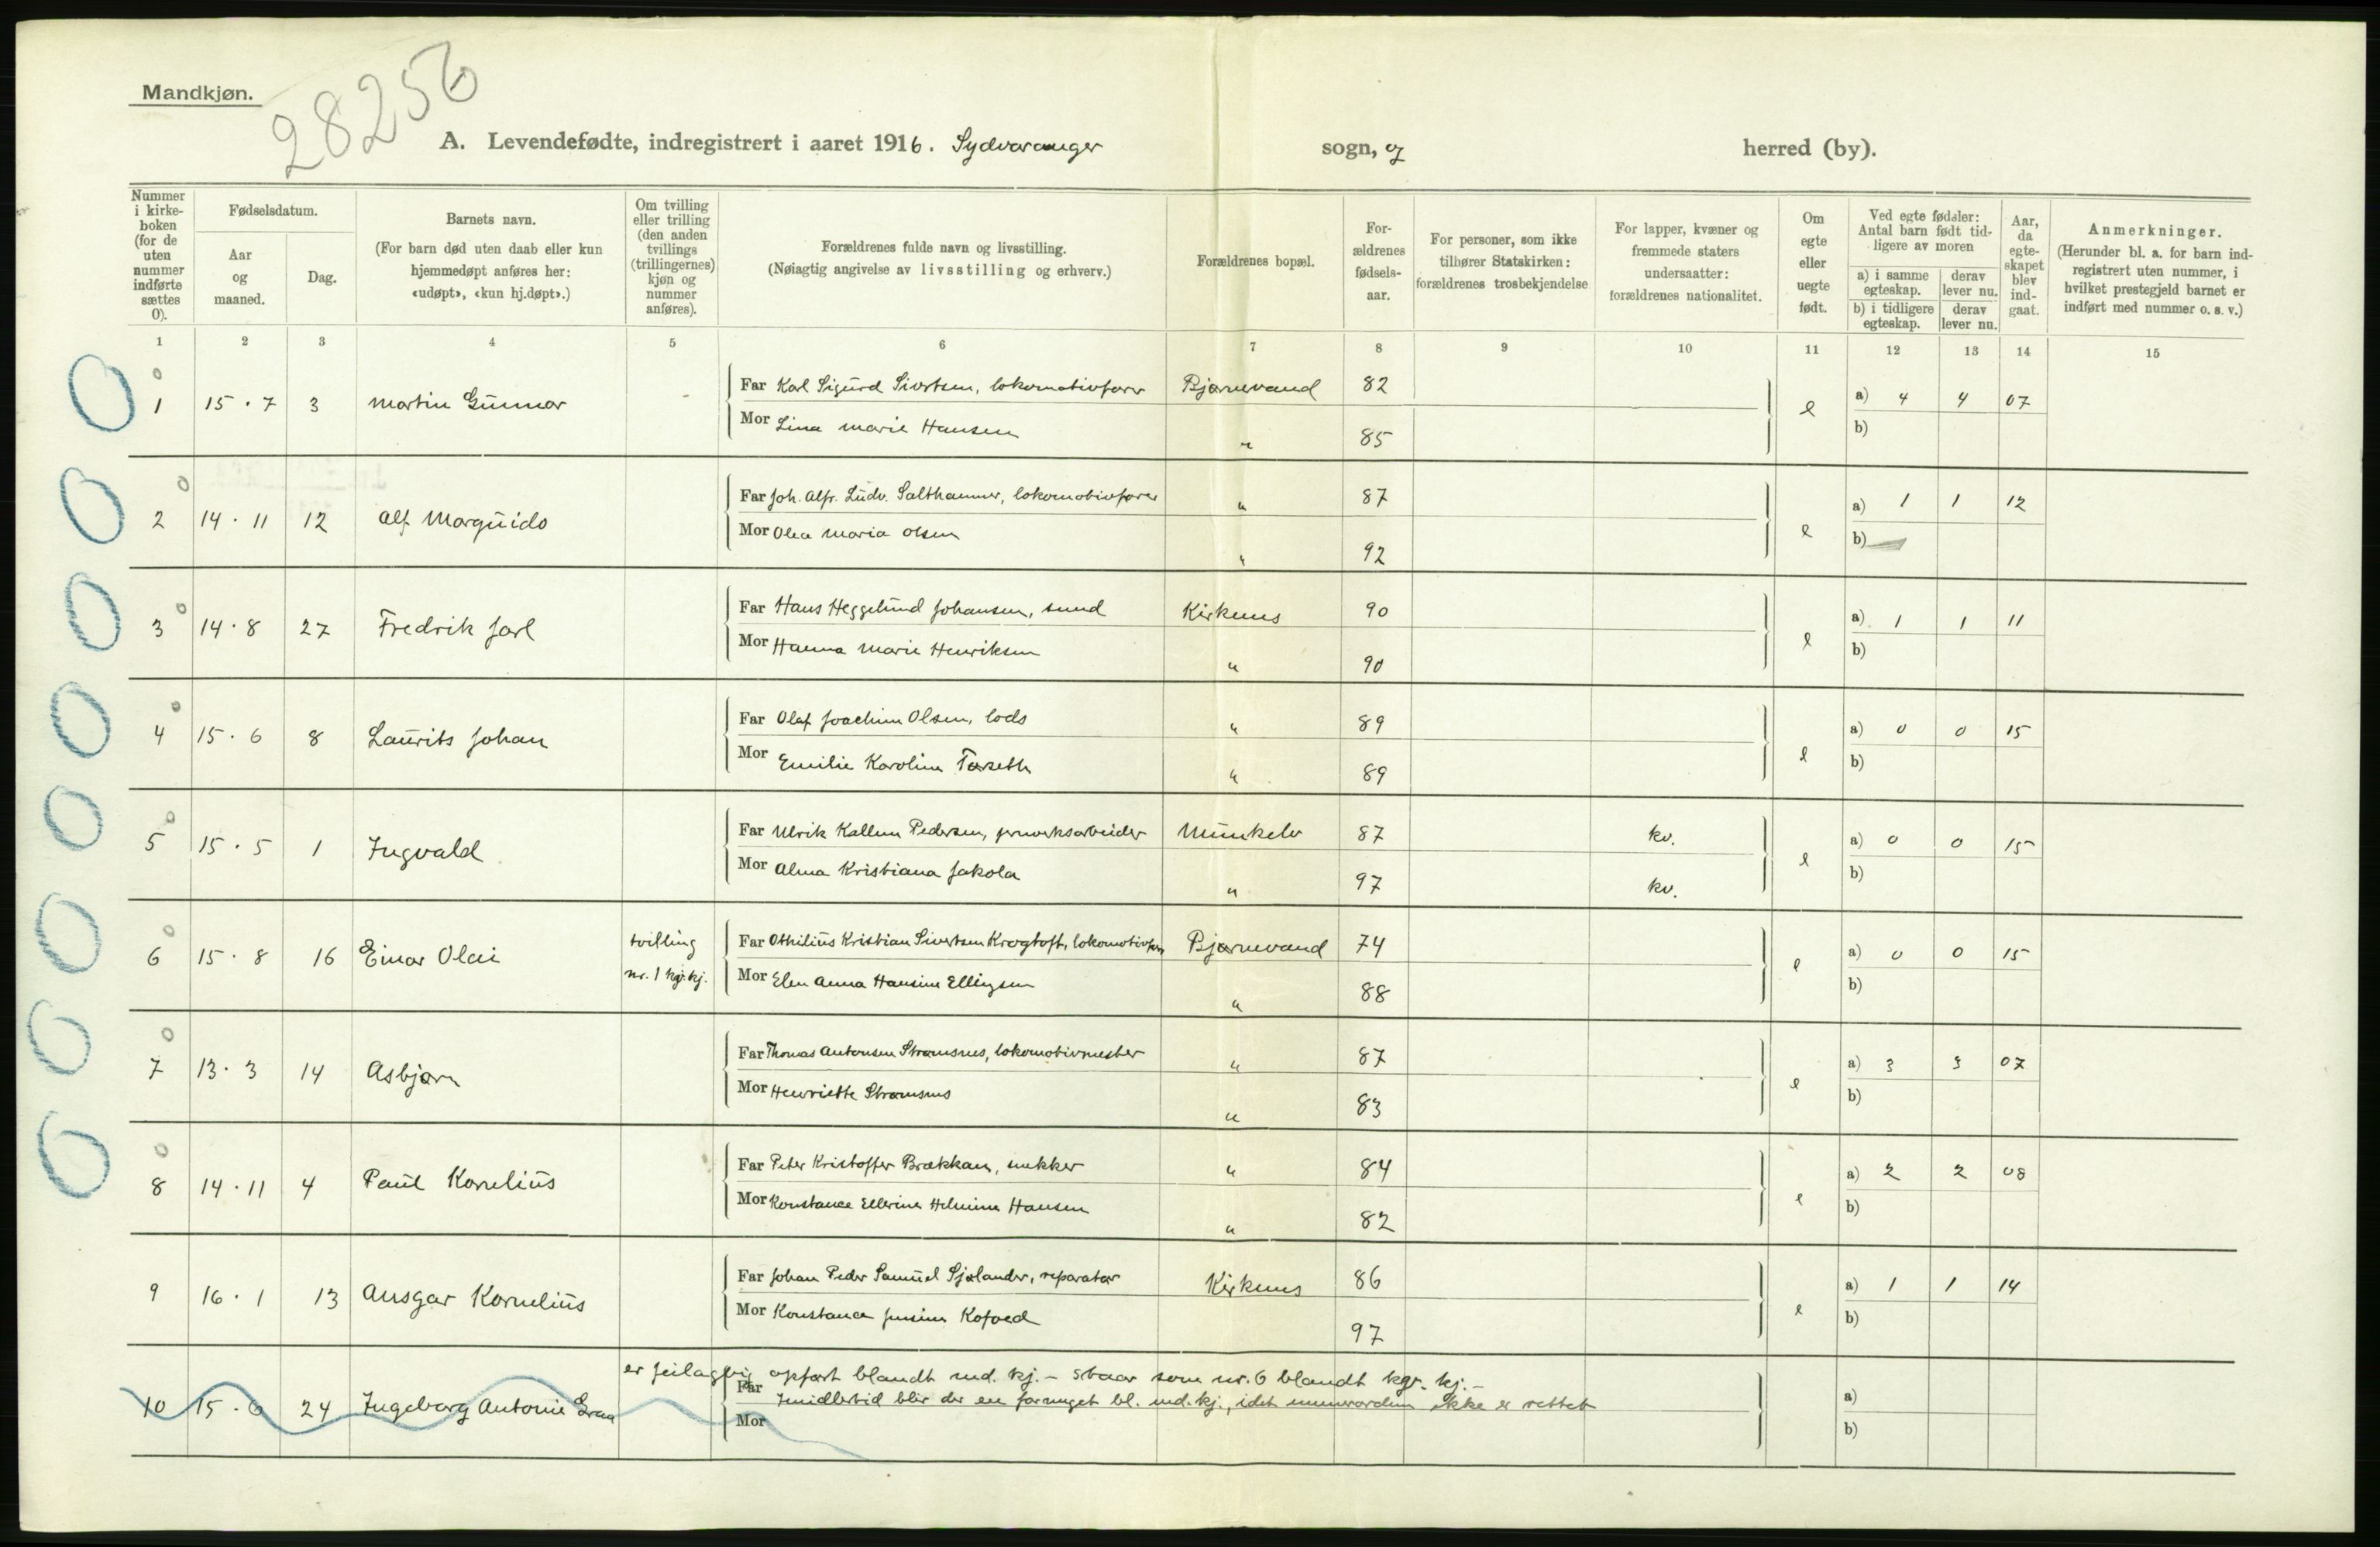 Mandkjøn.
28256
A. Levendefødte, indregistrert i aaret 1916. Sydvaranger sogn, og herred (by).
Nummer i kirkeboken (for de uten nummer indførte sættes 0).
Fødselsdatum.
Aar og maaned.
Dag.
Barnets navn.
(For barn død uten daab eller kun hjemmedøpt anføres her: «udøpt», «kun hj.døpt».)
Om tvilling eller trilling (den anden tvillings (trillingernes) kjøn og nummer anføres).
Forældrenes fulde navn og livsstilling.
(Nøiagtig angivelse av livsstilling og erhverv.)
Forældrenes bopæl.
Forældrenes fødselsaar.
For personer, som ikke tilhører Statskirken: forældrenes trosbekjendelse
For lapper, kvæner og fremmede staters undersaatter: forældrenes nationalitet.
Om egte eller uegte født.
Ved egte fødsler: Antal barn født tidligere av moren
a) i samme egteskap.
derav lever nu.
b) i tidligere egteskap.
derav lever nu.
Aar, da egteskapet blev indgaat.
Anmerkninger.
(Herunder bl. a. for barn indregistrert uten nummer, i hvilket prestegjeld barnet er indført med nummer o. s. v.)
1 2 3 4 5 6 7 8 9 10 11 12 13 14 15
0 0
1 15 . 7 3 Martin Gunnar - Far Karl Sigurd Sivertsen, lokomotivfører Bjørnevand 82 e a) 4 4 07
Mor Lina Marie Hansen " 85 b)
0 0
2 14 . 11 12 Alf Marguido Far Joh. Alfr. Ludv. Salthammer, lokomotivfører " 87 e a) 1 1 12
Mor Olea Maria Olsen " 92 b)
0 0
3 14 . 8 27 Fredrik Jarl Far Hans Heggelund Johansen, smed Kirkenes 90 e a) 1 1 11
Mor Hanna Marie Henriksen " 90 b)
0 0
4 15 . 6 8 Laurits Johan Far Olaf Joachim Olsen, lods " 89 e a) 0 0 15
Mor Emilie Karoline Torseth " 89 b)
0 0
5 15 . 5 1 Ingvald Far Ulrik Kallum Pedersen, jernverksarbeider Munkelv 87 kv. e a) 0 0 15
Mor Alma Kristiana Jakola " 97 kv. b)
0 0
6 15 . 8 16 Einar Olai tvilling nr. 1 kv.kj. Far Othilius Kristian Sivertsen Krogtoft, lokomotivfører Bjørnevand 74 e a) 0 0 15
Mor Elen Anna Hansine Ellingsen " 88 b)
0 0
7 13 . 3 14 Asbjørn Far Thomas Antonsen Strømsnes, lokomotivmester " 87 e a) 3 3 07
Mor Henriette Strømsnes " 83 b)
0 0
8 14 . 11 4 Paul Kornelius Far Peter Kristoffer Brækkan, snekker " 84 e a) 2 2 08
Mor Konstance Ellerine Helmine Hansen " 82 b)
9 16 . 1 13 Ansgar Kornelius Far Johan Peder Samuel Sjølander, reparatør Kirkenes 86 e a) 1 1 14
Mor Konstance Jensine Kofoed 97 b)
er feilagtig opført blandt md. kj. - staar som nr. 6 blandt kv. kj. -
10 15 . 6 24 Ingeborg Antonie Far Imidlertid blir der en formeget bl. md. kj., idet nummerorden ikke er rettet a)
Mor b)